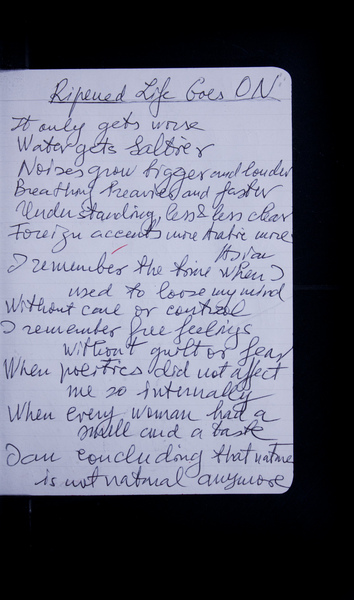 Ripened Life Goes ON
It only gets worse
Water gets Saltier
Noises grow bigger and louder
Breathing heavier and faster
Understanding less & less clear
Foreign accents more Arabic more
Asian
I remember the time when I
used to loose my mind
Without care or control
I remember free feelings
without guilt or fear
When politics did not affect
me so internally
When every woman had a
smell and a taste
I am concluding that nature
is not natural anymore